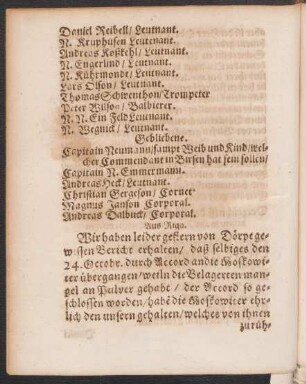 Daniel Reibell/ Leutnant.
N. Kruphusen Leutenant.
Andreas Koßkehl/ Leutnant.
N. Engerlind/ Leutnant.
N. Kührmondt/ Leutnant.
Lars Olson/ Leutnant.
Thomas Schwenthon/ Trompeter
Peter Wilson/ Balbierer.
N. N. Ein Feld Leutnant.
N. Wegnick/ Leutnant.
Gebliebene.
Capitain Neumann/ sampt Weib und Kind/ wel-
cher Commendant in Bursen hat sein sollen/
Capitain N. Emmermann.
Andreas Heck/ Leutnant.
Christian Gergeson/ Cornet
Magnus Janson Corporal.
Andreas Dalbuck/ Corporal.
Aus Riga.
Wir haben leider gestern von Dörpt ge-
wissen Bericht erhalten/ daß selbiges den
24. Octobr. durch Accord an die Moskowi-
ter übergangen/ weiln die Belagerten man-
gel an Pulver gehabt/ der Accord so ge-
schlossen worden/ habē die Moskowiter ehr-
lich den unsern gehalten/ welches von ihnen
zu rüh-